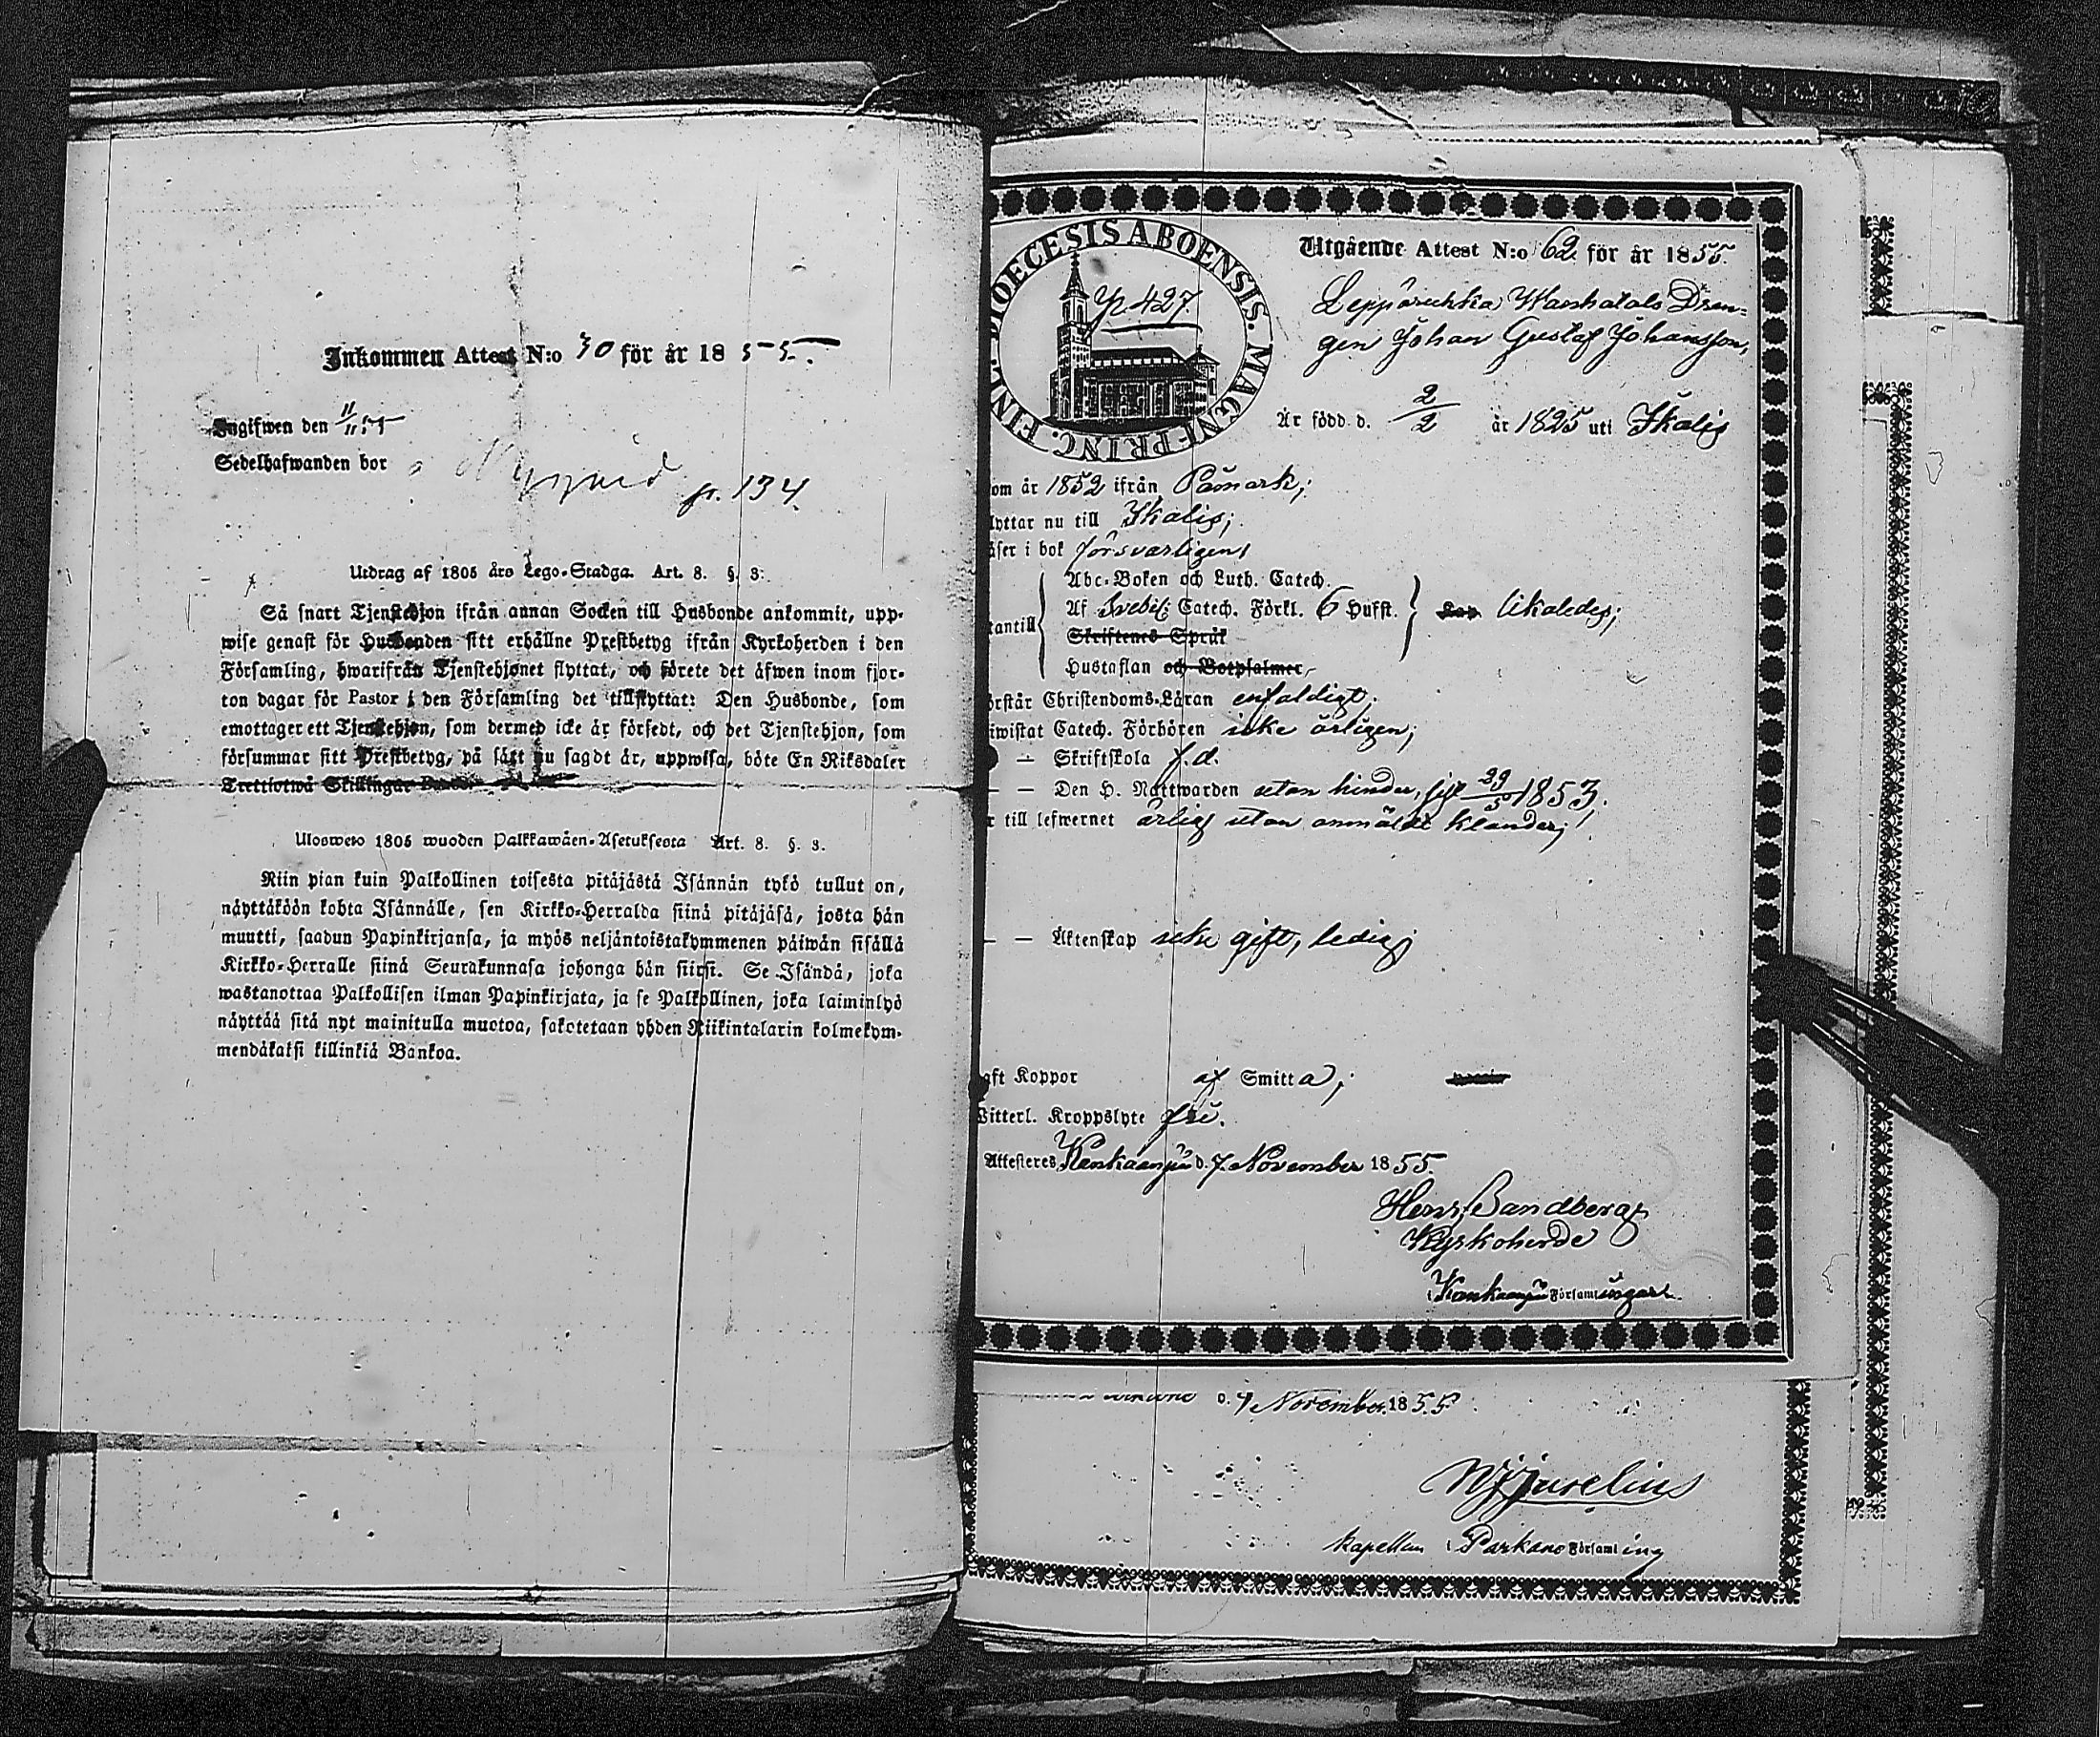 Inkommen Attest N:o 30 för år 1855.
Ingifwen den 11/11 55
Sedelhafwanden bor
p. 134.
Utdrag af 1805 års Lego-Stadga. Art. 8. §. 3.
Så snart Tjenstehjon ifrån annan Socken till Husbonde ankommit, upp-
wise genast för Husbonden sitt erhållne Prestbetyg ifrån Kyrkoherden i den
Församling, hwarifrån Tjenstehjonet flyttat, och förete det äfwen inom fjor-
ton dagar för Pastor i den Församling det tillflyttat: Den Husbonde, som
emottager ett Tjenstehjon, som dermed icke är försedt, och det Tjenstehjon, som
försummar sitt Prestbetyg, på sätt nu sagdt är, uppwisa, böte En Riksdaler
Trettiotwå Skillingar
Ulosweto 1805 wuoden Palkkawäen-Asetuksesta Art. 8. §. 3.
Niin pian kuin Palkollinen toisesta pitäjästä Isännän tykö tullut on,
näyttäköön kohta Isännälle, sen Kirkko-Herralda siinä pitäjäsä, josta hän
muutti, saadun Papinkirjansa, ja myös neljäntoistakymmenen päiwän sisällä
Kirkko-Herralle siinä Seurakunnasa johonga hän siirsi. Se Isändä, joka
wastanottaa Palkollisen ilman Papinkirjata, ja se Palkollinen, joka laiminlyö
näyttää sitä nyt mainitulla muotoa, sakotetaan yhden Riikintalarin kolmekym-
mendäkaksi killinkiä Bankoa.
DIOECESIS ABOENSIS. MAGNI PRINC. FINL.
p 427.
Utgående Attest N:o 62 för år 1855.
Drän-
gen Johan Gustaf Johansson,
Är född d. 2/2 år 1825 uti Ikalis
om år 1852 ifrån Påmark;
lyttar nu till Ikalis;
äser i bok försvarligen,
Abc-Boken och Luth. Catech.
Af Svebil: Catech. Förkl. 6 Hufst.
antill likaledes;
Skriftenes Språk
Hustaflan och Botpsalmer
örstår Christendoms-Läran enfaldigt;
iwistat Catech. Förhören icke årligen;
— Skriftskola f.d.
— — Den H. Nattwarden utan hinder, sist 29/5 1853.
r till lefwernet ärlig utan anmäldt klander;
— — Äktenskap icke gift, ledig
aft Koppor af Smitta;
Witterl. Kroppslyte fri.
Attesteres Kankaanpää d. 7 November 1855.
Henr. Sandberg
Kyrkoherde
i Kankaanpää Församlingar.
d. 4 November 1855
Kapellan i Parkano Församling